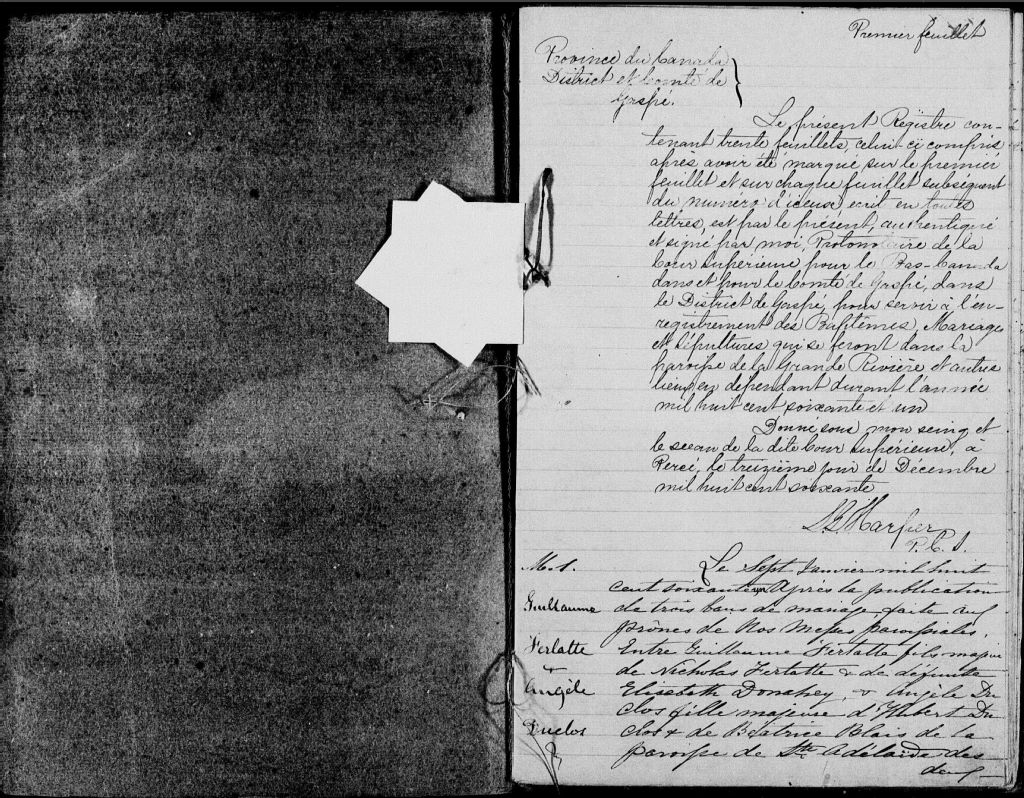 Premier feuillet
Province du Canada
District et Comté de
Gaspé.
Le présent Régistre con-
tenant trente feuillets, celui-ci compris
après avoir été marqué sur le premier
feuillet et sur chaque feuillet subséquent
du numéro d'iceux, écrit en toutes
lettres, est par le présent, authentiqué
et signé par moi, Protonotaire de la
Cour Supérieure pour le Bas-Canada
dans et pour le Comté de Gaspé, dans
le District de Gaspé, pour servir à l'en-
registrement des Baptêmes, Mariages
et Sépultures qui se feront dans la
paroisse de la Grande Rivière et autres
lieux en dépendant durant l'année
mil huit cent soixante et un
Donné sous mon seing et
le sceau de la dite Cour Supérieure, à
Percé, le treizième jour de Décembre
mil huit cent soixante
Harper
P.C.S.
M. 1.
Guillaume
Ferlatte
&
Angèle
Duclos
Le Sept Janvier mil huit
cent soixante un Après la publication
de trois bans de mariage faite aux
prônes de Nos Messes paroissiales,
Entre Guillaume Ferlatte fils majeur
de Nicholas Ferlatte & de défunte
Elisabeth Donahey, & Angèle Du
clos fille majeure d'Hubert Du
clos & de Béatrice Blais de la
paroisse de Ste Adélaide des